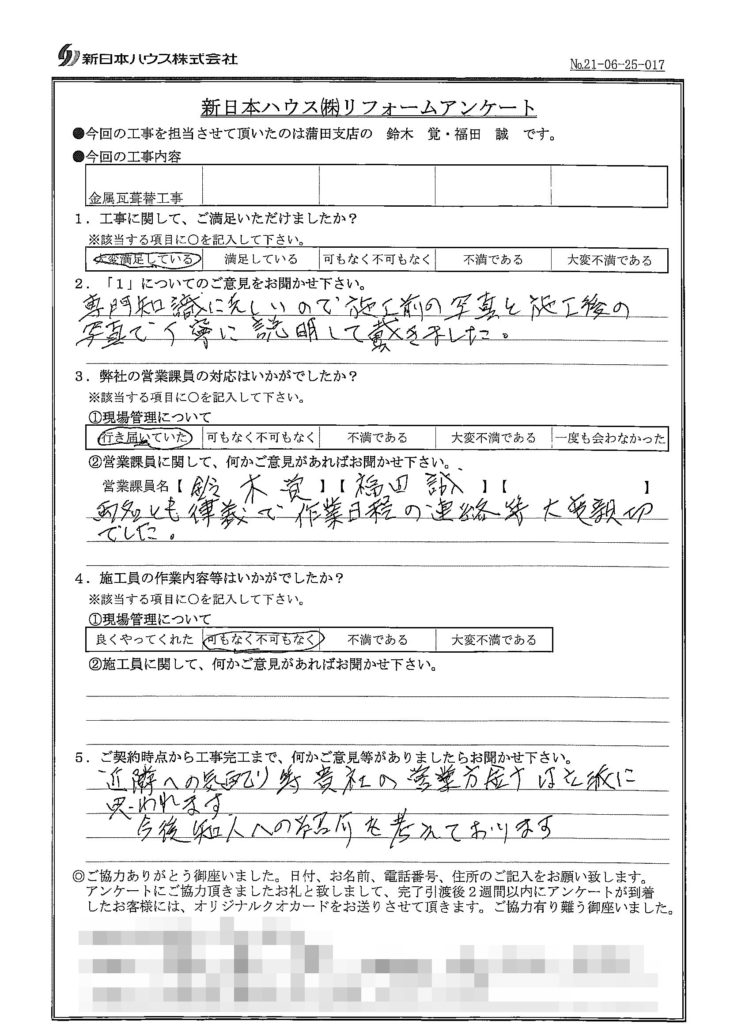 新日本ハウス株式会社
No.21-06-25-017
新日本ハウス㈱リフォームアンケート
●今回の工事を担当させて頂いたのは蒲田支店の 鈴木 覚・福田 誠 です。
●今回の工事内容
金属瓦葺替工事
1．工事に関して、ご満足いただけましたか？
※該当する項目に〇を記入して下さい。
大変満足している 満足している 可もなく不可もなく 不満である 大変不満である
2．「1」についてのご意見をお聞かせ下さい。
専門知識に乏しいので施工前の写真と施工後の
写真で丁寧に説明して戴きました。
3．弊社の営業課員の対応はいかがでしたか？
※該当する項目に〇を記入して下さい。
①現場管理について
行き届いていた 可もなく不可もなく 不満である 大変不満である 一度も会わなかった
②営業課員に関して、何かご意見があればお聞かせ下さい。
営業課員名【 鈴木 覚 】【 福田 誠 】【 】
両名とも律義で作業日程の連絡等大変親切
でした。
4．施工員の作業内容等はいかがでしたか？
※該当する項目に〇を記入して下さい。
①現場管理について
良くやってくれた 可もなく不可もなく 不満である 大変不満である
②施工員に関して、何かご意見があればお聞かせ下さい。
5．ご契約時点から工事完工まで、何かご意見等がありましたらお聞かせ下さい。
近隣への気配り等貴社の営業方金は立派に
思われます
今後知人への紹介も考えております
◎ご協力ありがとう御座いました。日付、お名前、電話番号、住所のご記入をお願い致します。
アンケートにご協力頂きましたお礼と致しまして、完了引渡後2週間以内にアンケートが到着
したお客様には、オリジナルクオカードをお送りさせて頂きます。ご協力有り難う御座いました。